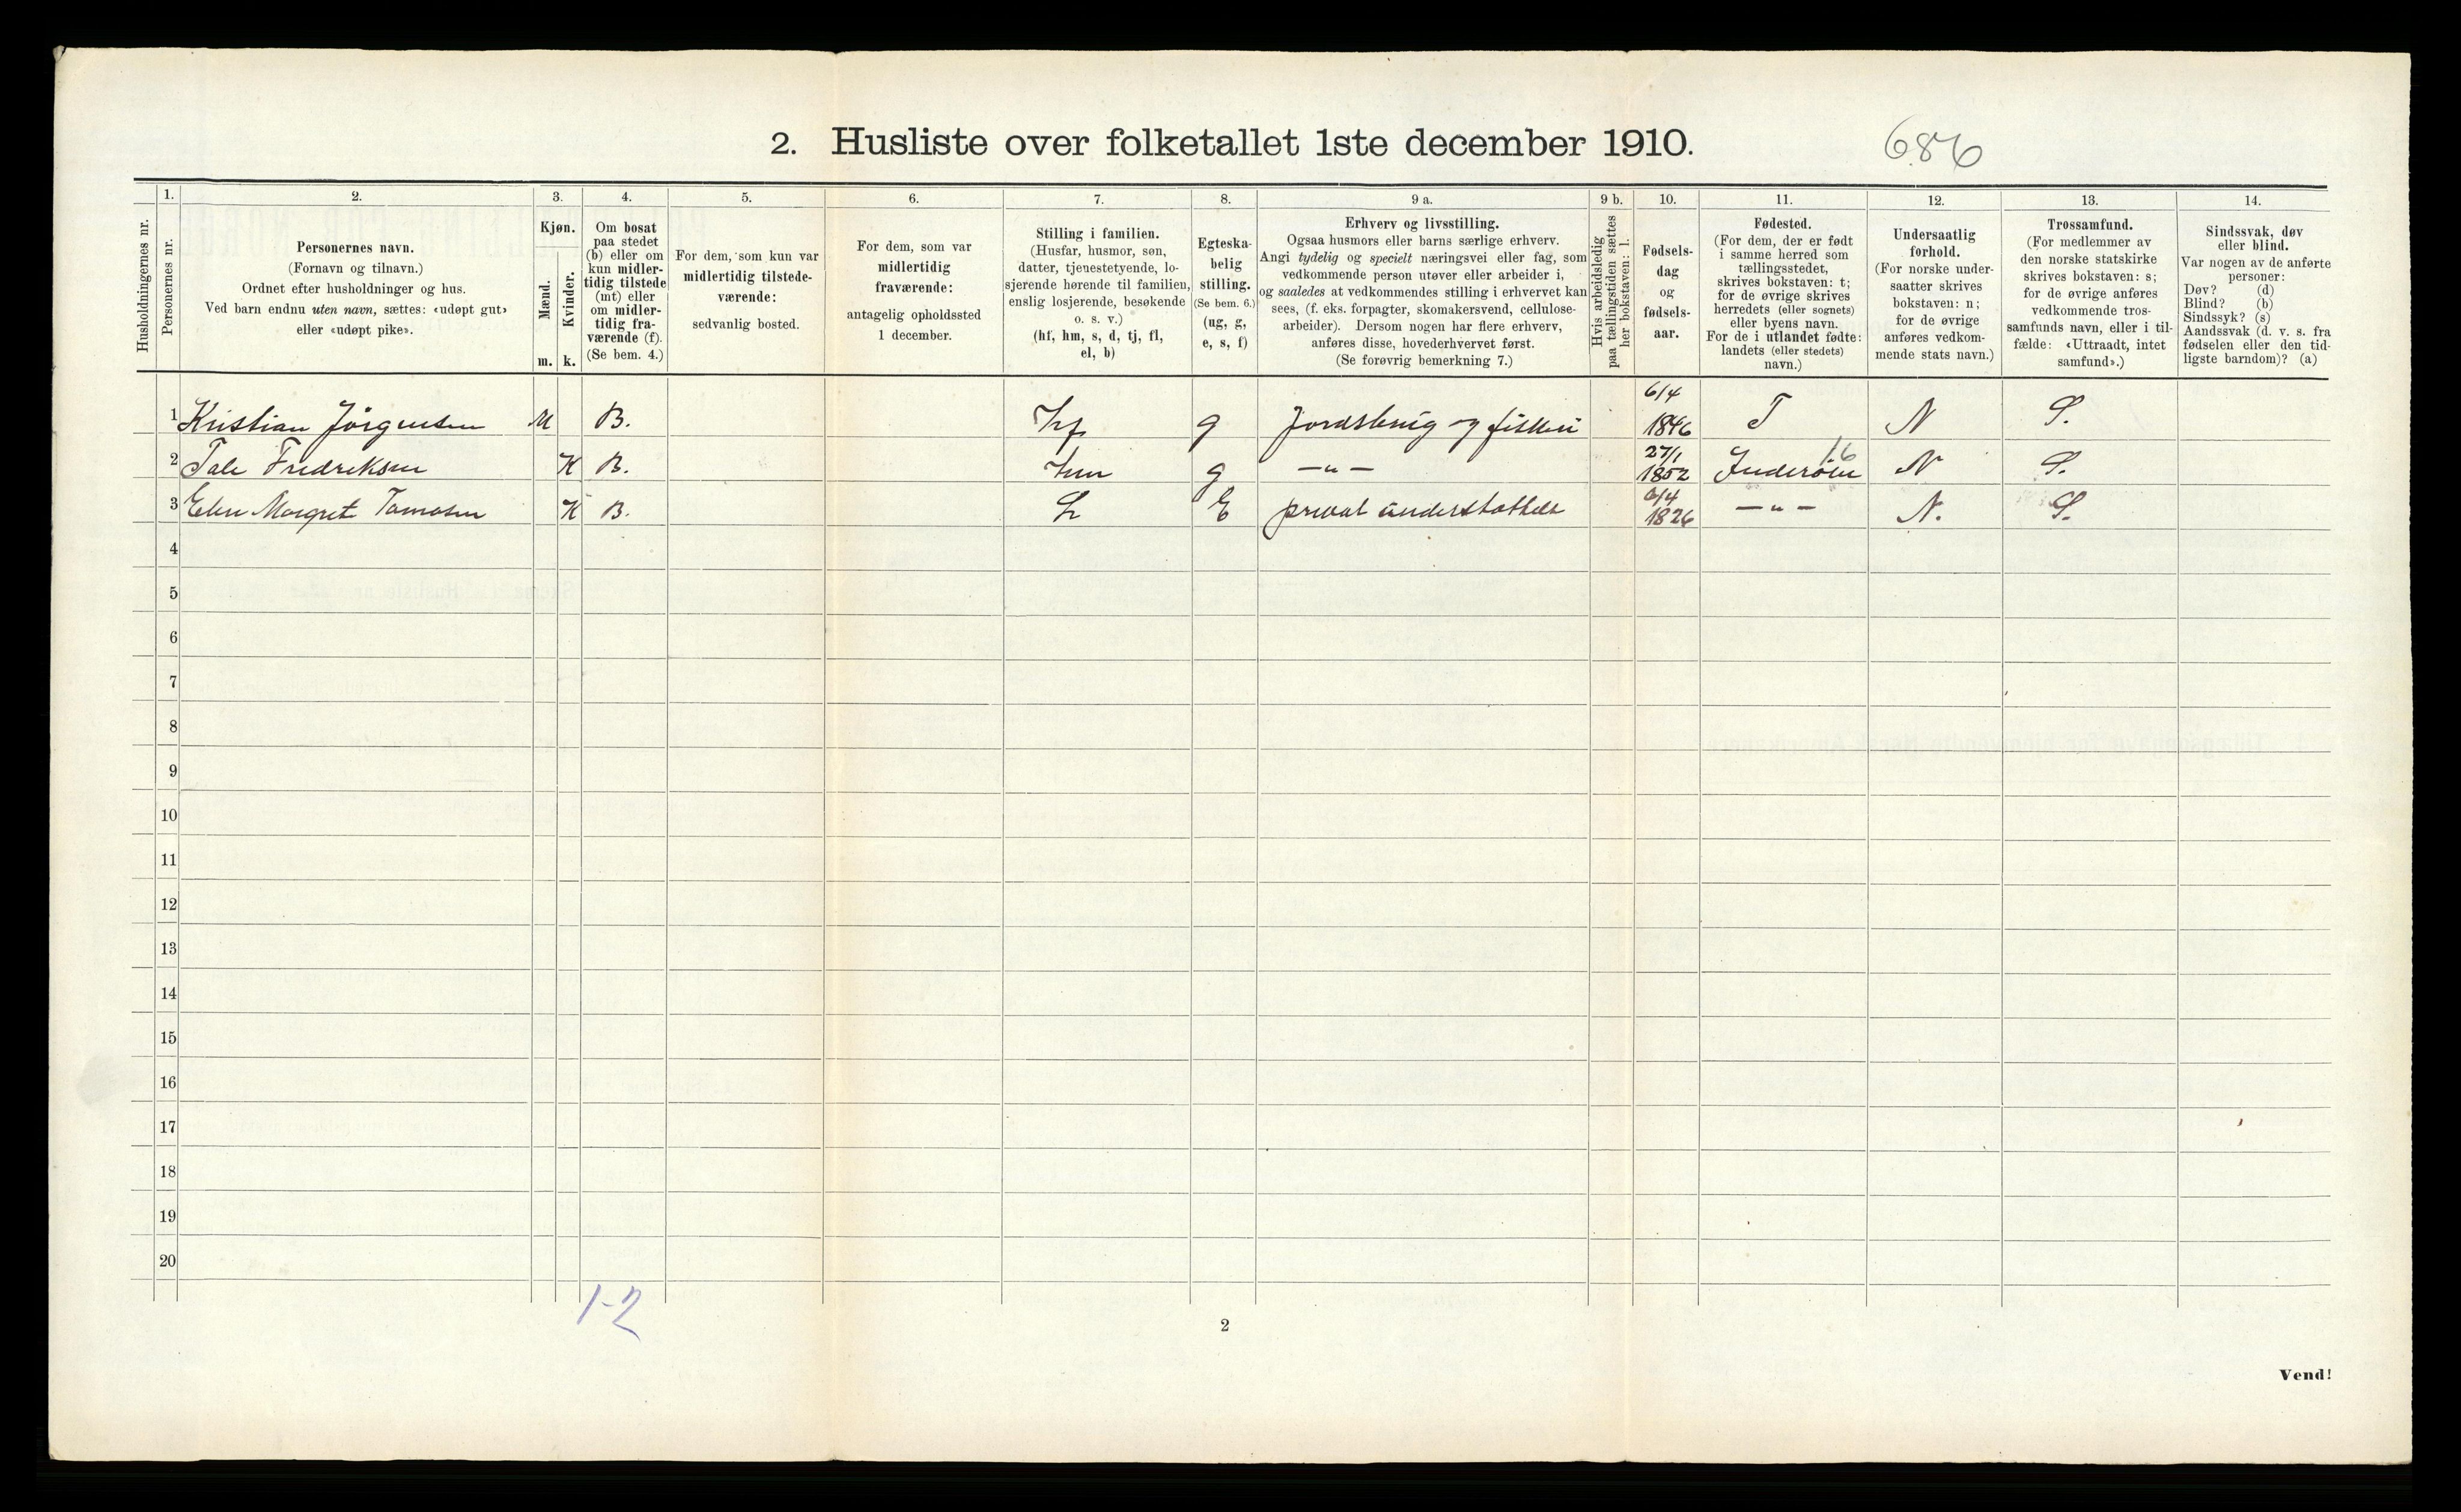 2. Husliste over folketallet 1ste december 1910.
686
Husholdningernes nr.
1.
Personernes nr.
2.
Personernes navn.
(Fornavn og tilnavn.)
Ordnet efter husholdninger og hus.
Ved barn endnu uten navn, sættes: «udøpt gut»
eller «udøpt pike».
3.
Kjøn.
Mænd.
Kvinder.
m. k.
4.
Om bosat
paa stedet
(b) eller om
kun midler-
tidig tilstede
(mt) eller
om midler-
tidig fra-
værende (f).
(Se bem. 4.)
5.
For dem, som kun var
midlertidig tilstede-
værende:
sedvanlig bosted.
6.
For dem, som var
midlertidig
fraværende:
antagelig opholdssted
1 december.
7.
Stilling i familien.
(Husfar, husmor, søn,
datter, tjenestetyende, lo-
sjerende hørende til familien,
enslig losjerende, besøkende
o. s. v.)
(hf, hm, s, d, tj, fl,
el, b)
8.
Egteska-
belig
stilling.
(Se bem. 6.)
(ug, g,
e, s, f)
9 a.
Erhverv og livsstilling.
Ogsaa husmors eller barns særlige erhverv.
Angi tydelig og specielt næringsvei eller fag, som
vedkommende person utøver eller arbeider i,
og saaledes at vedkommendes stilling i erhvervet kan
sees, (f. eks. forpagter, skomakersvend, cellulose-
arbeider). Dersom nogen har flere erhverv,
anføres disse, hovederhvervet først.
(Se forøvrig bemerkning 7.)
9 b.
Hvis arbeidsledig
paa tællingstiden sættes
her bokstaven: l.
10.
Fødsels-
dag
og
fødsels-
aar.
11.
Fødested.
(For dem, der er født
i samme herred som
tællingsstedet,
skrives bokstaven: t;
for de øvrige skrives
herredets (eller sognets)
eller byens navn.
For de i utlandet fødte:
landets (eller stedets)
navn.)
12.
Undersaatlig
forhold.
(For norske under-
saatter skrives
bokstaven: n;
for de øvrige
anføres vedkom-
mende stats navn.)
13.
Trossamfund.
(For medlemmer av
den norske statskirke
skrives bokstaven: s;
for de øvrige anføres
vedkommende tros-
samfunds navn, eller i til-
fælde: «Uttraadt, intet
samfund».)
14.
Sindssvak, døv
eller blind.
Var nogen av de anførte
personer:
Døv? (d)
Blind? (b)
Sindssyk? (s)
Aandssvak (d. v. s. fra
fødselen eller den tid-
ligste barndom)? (a)
1 Kristian Jörgensen M B. hf g Jordsbrug og fiskeri 6/4 1846 T N S.
2 Tale Fredriksen K B. hm g —„— 27/1 1852 Inderöen 16 N S.
3 Elen Margret Tomasen K B. L E privat understöttelse 6/4 1826 —„— N. S.
4
5
6
7
8
9
10
11
12
13
14
15
16
17
18
19
20
1-2
2
Vend!